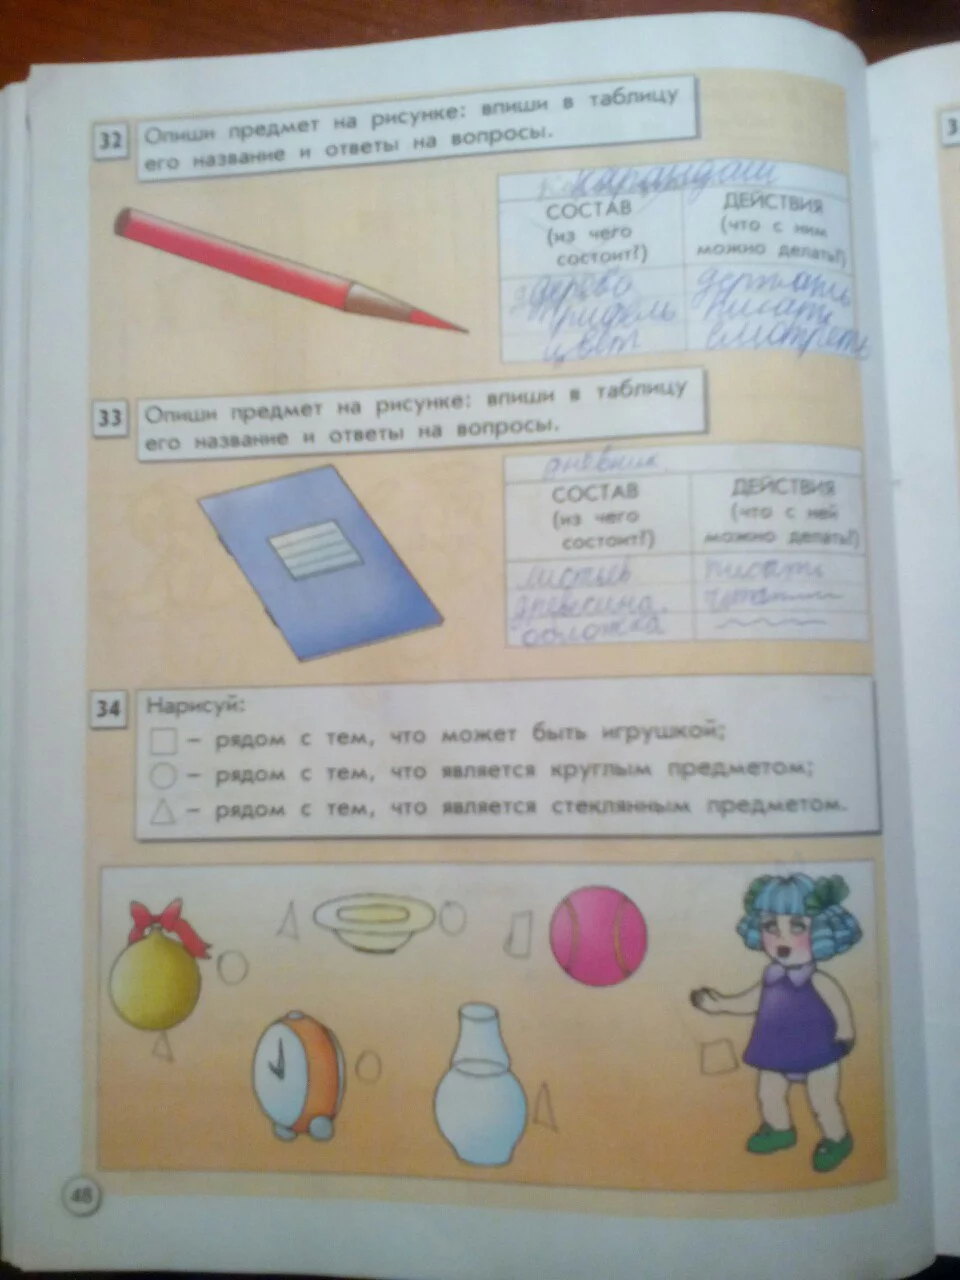 32 Опиши предмет на рисунке: впиши в таблицу
его название и ответы на вопросы.
карандаш
СОСТАВ
(из чего
состоит?)
ДЕЙСТВИЯ
(что с ним
можно делать?)
дерево
грифель
цвет
держать
писать
смотреть
33 Опиши предмет на рисунке: впиши в таблицу
его название и ответы на вопросы.
дневник
СОСТАВ
(из чего
состоит?)
ДЕЙСТВИЯ
(что с ней
можно делать?)
листьев
древесина
обложка
писать
34 Нарисуй:
– рядом с тем, что может быть игрушкой;
– рядом с тем, что является круглым предметом;
– рядом с тем, что является стеклянным предметом.
48
3